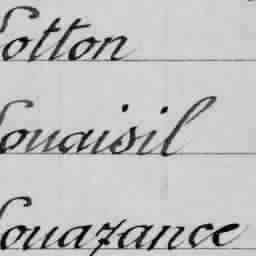 Lotton
Louaisil
Louazance